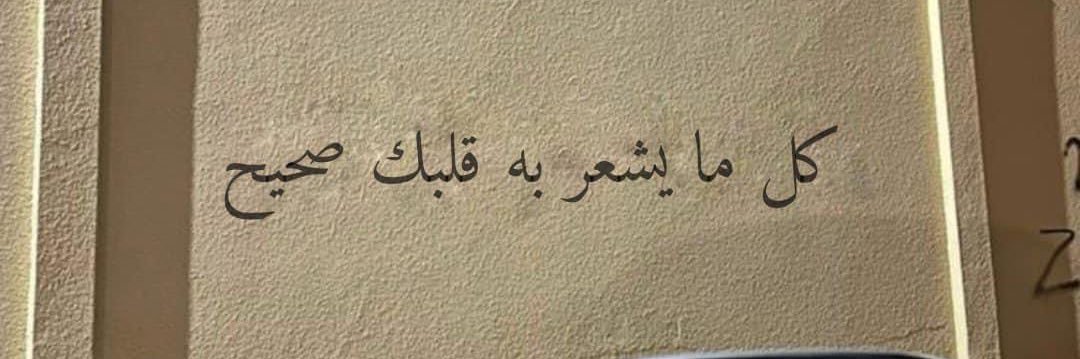 كل ما يشعر به قلبك صحيح